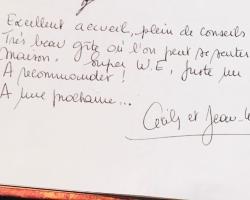 Excellent accueil, plein de conseils
Très beau gîte où l'on peut se sentir
maison. Super W.E, juste un
A recommander !
A une prochaine...
Cécile et Jean-